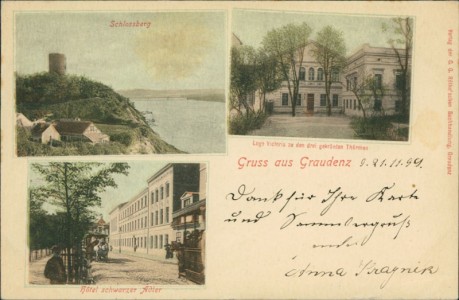 Schlossberg
Loge Victoria zu den drei gekrönten Thürmen
Gruss aus Graudenz
21.11.99.
Dank für Ihre Karte
und Sammlergruß
Anna
Hôtel schwarzer Adler
Verlag der
Buchhandlung, Graudenz